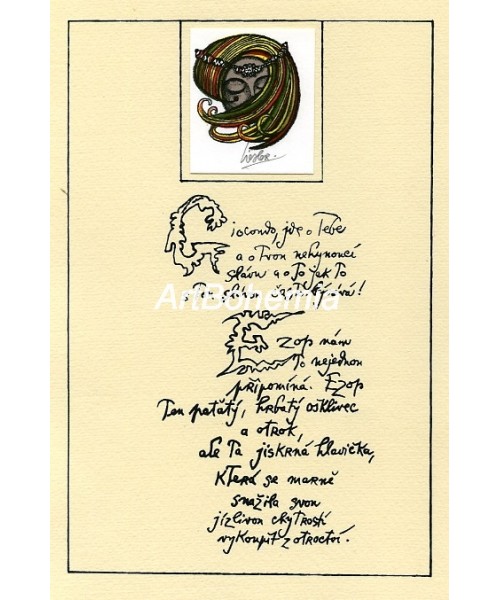 Giocondo, jde o Tebe
a o Tvou nehynoucí
slávu a o To jak To
s tou slávou bývá!
ArtBohemia
Ezop nám
To nejednou
připomíná. Ezop
Ten paťatý, hrbatý ošklivec
a otrok,
ale Ta jiskrná hlavička,
která se marně
snažila svou
jízlivou chytrostí
vykoupit z otroctví.